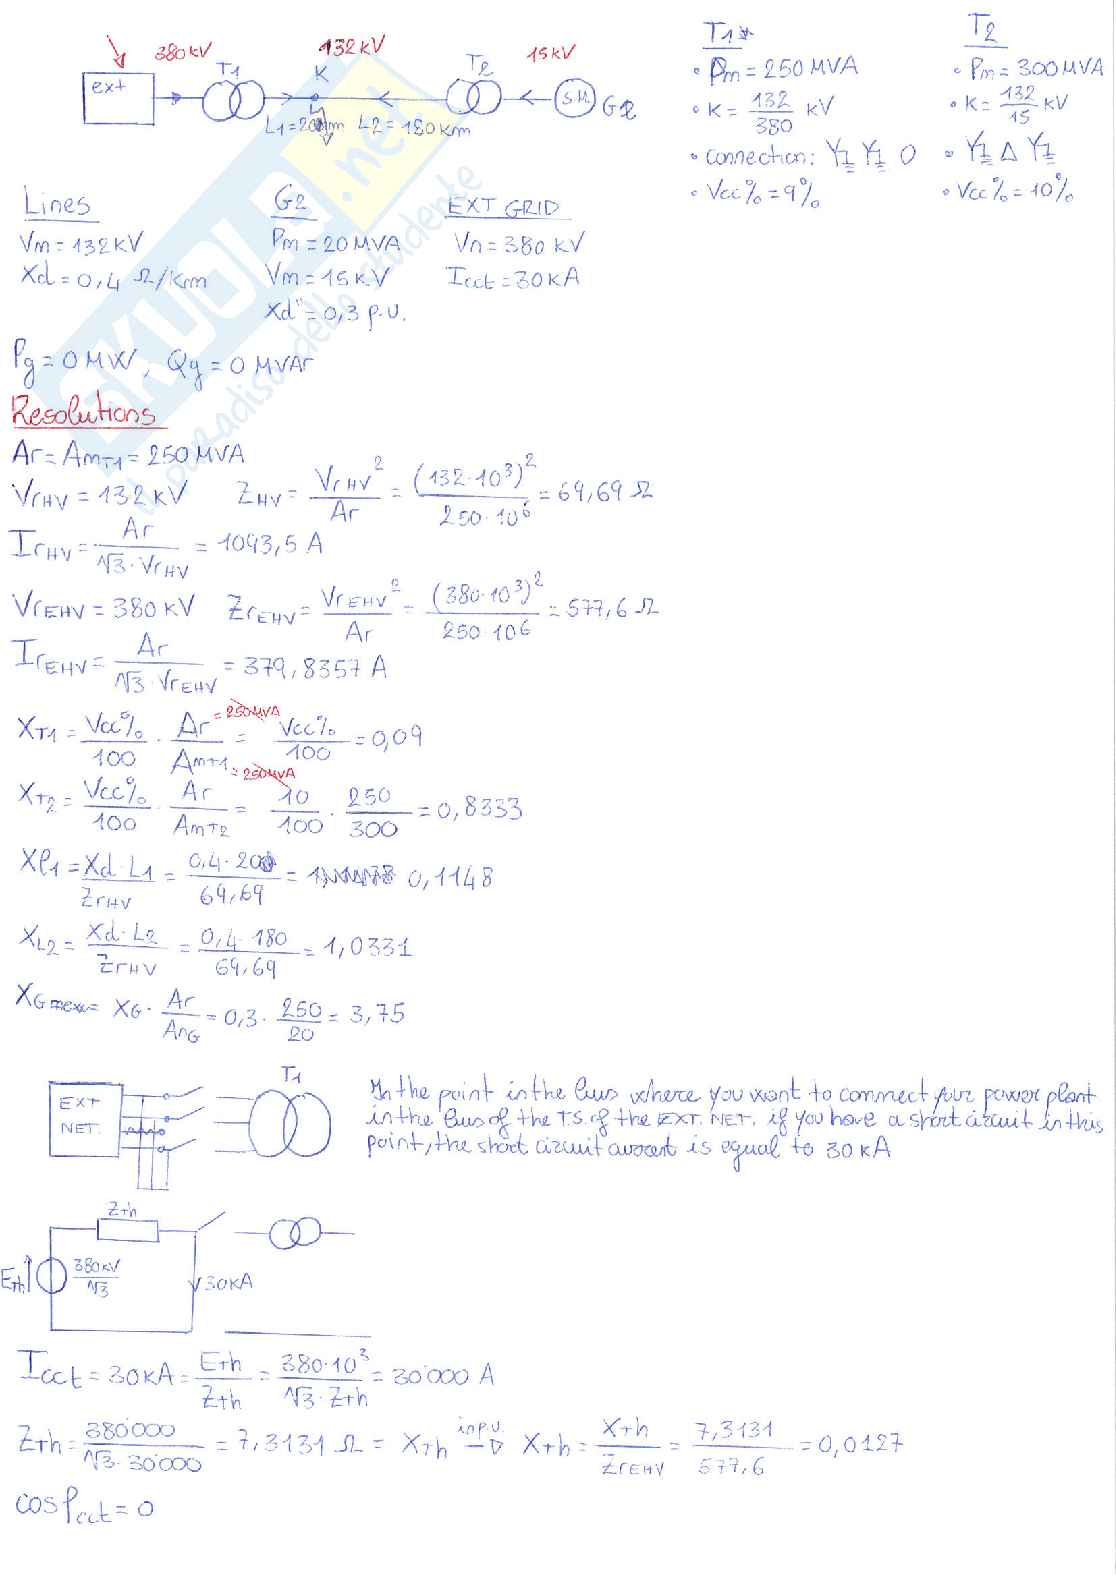 380kV 132kV 15kV
ext T1 K T2 S.M. G2
L1=20km L2=180km
T1 T2
• Pm=250 MVA • Pm=300MVA
• K=132/380 kV • K=132/15 kV
• connection: Y Y 0 • Y Δ Y
• Vcc%=9% • Vcc%=10%
Lines G2 EXT GRID
Vm=132kV Pm=20MVA Vn=380 kV
Xd=0,4 Ω/Km Vm=15kV Icct=30kA
Xd"=0,3 p.u.
Pg=0MW, Qg=0 MVAr
SKUOLA.net
il paradiso dello studente
Resolutions
Ar=AmT1=250MVA
VrHV=132kV ZHV=VrHV²/Ar=(132·10³)²/250·10⁶=69,69 Ω
IrHV=Ar/√3·VrHV=1093,5 A
VrEHV=380kV ZrEHV=VrEHV²/Ar=(380·10³)²/250·10⁶=577,6 Ω
IrEHV=Ar/√3·VrEHV=379,8357 A
XT1=Vcc%/100·Ar=250MVA/AmT1=250MVA=Vcc%/100=0,09
XT2=Vcc%/100·Ar/AmT2=10/100·250/300=0,8333
Xl1=Xd·L1/ZrHV=0,4·20/69,69=0,1148
XL2=Xd·L2/ZrHV=0,4·180/69,69=1,0331
XG=XG·Ar/AnG=0,3·250/20=3,75
EXT NET. T1
In the point in the bus where you want to connect your power plant
in the bus of the T.S. of the EXT. NET. if you have a short circuit in this
point, the short circuit current is equal to 30kA
Zth
Eth 380kV/√3 30kA
Icct=30kA=Eth/Zth=380·10³/√3·Zth=30'000 A
Zth=380'000/√3·30'000=7,3131 Ω=XTh in p.u. → Xth=Xth/ZrEHV=7,3131/577,6=0,0127
cosφcct=0